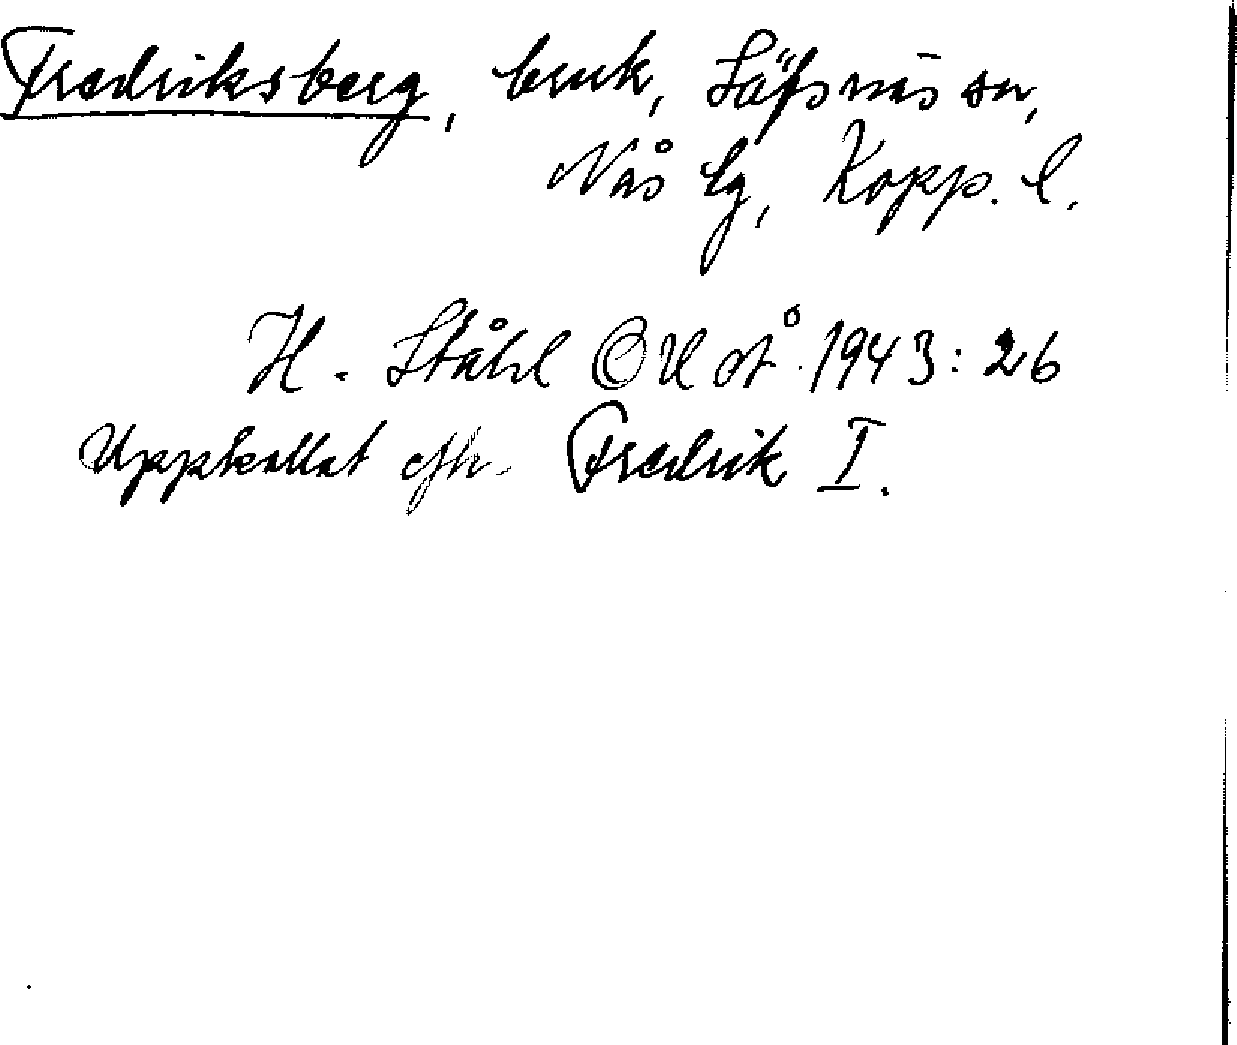 Fredriksberg, bruk, Säfsnäs sn,
Nås tg, Kopp. l.
H. Ståhl OUÅ 1943: 26
Uppkallat eftr. Fredrik I.